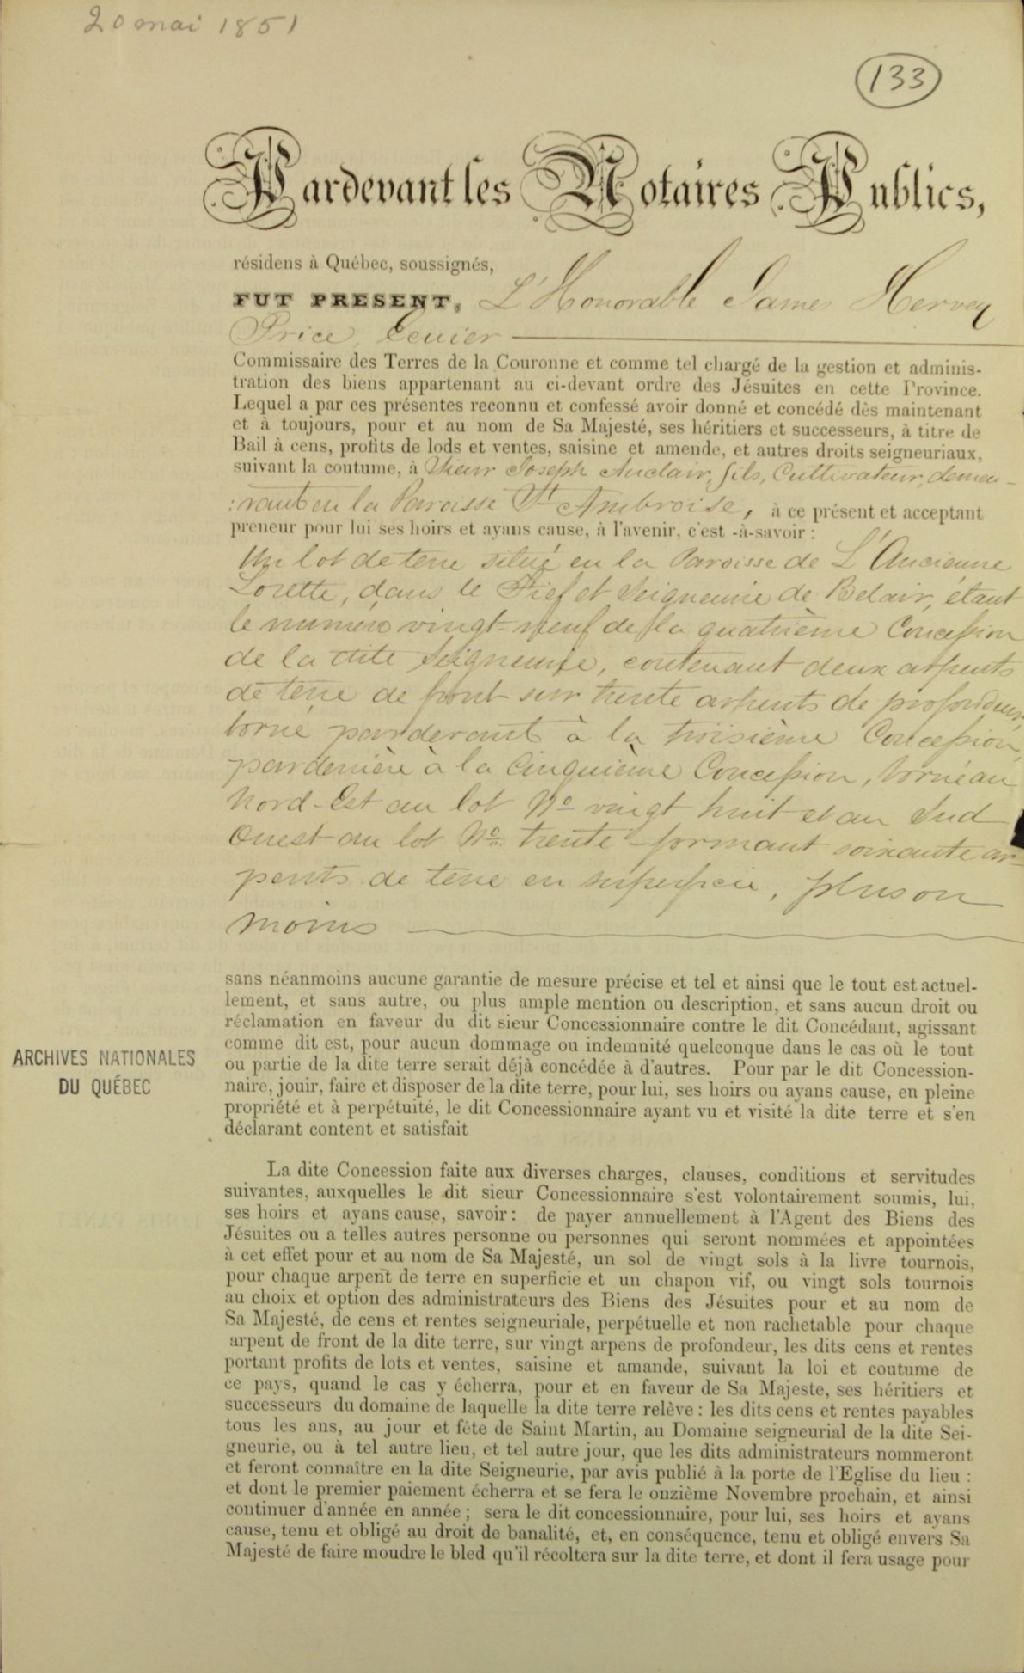 20 mai 1851
133
Pardevant les Notaires Publics,
résidens à Québec, soussignés,
FUT PRESENT, L'Honorable James Hervey
Price, Ecuier
Commissaire des Terres de la Couronne et comme tel chargé de la gestion et adminis-
tration des biens appartenant au ci-devant ordre des Jésuites en cette Province.
Lequel a par ces présentes reconnu et confessé avoir donné et concédé dès maintenant
et à toujours, pour et au nom de Sa Majesté, ses héritiers et successeurs, à titre de
Bail à cens, profits de lods et ventes, saisine et amende, et autres droits seigneuriaux,
suivant la coutume, à Sieur Joseph Auclair, fils, Cultivateur, demeu-
:rant en la Paroisse St Ambroise, à ce présent et acceptant
preneur pour lui ses hoirs et ayans cause, à l'avenir, c'est -à-savoir :
Un lot de terre situé en la Paroisse de L'Ancienne
Lorette, dans le Fief et Seigneurie de Belair, étant
le numéro vingt-neuf de la quatrième Concession
de la dite Seigneurie, contenant deux arpents
de terre de front sur trente arpents de profondeur,
borné pardevant à la troisième Concession,
parderrière à la Cinquième Concession, borné au
Nord-Est au lot No vingt huit et au Sud
Ouest au lot No trente formant soixante ar-
pents de terre en superficie, plus ou
moins
sans néanmoins aucune garantie de mesure précise et tel et ainsi que le tout est actuel-
lement, et sans autre, ou plus ample mention ou description, et sans aucun droit ou
réclamation en faveur du dit sieur Concessionnaire contre le dit Concédant, agissant
comme dit est, pour aucun dommage ou indemnité quelconque dans le cas où le tout
ou partie de la dite terre serait déjà concédée à d'autres. Pour par le dit Concession-
naire, jouir, faire et disposer de la dite terre, pour lui, ses hoirs ou ayans cause, en pleine
propriété et à perpétuité, le dit Concessionnaire ayant vu et visité la dite terre et s'en
déclarant content et satisfait
ARCHIVES NATIONALES
DU QUÉBEC
La dite Concession faite aux diverses charges, clauses, conditions et servitudes
suivantes, auxquelles le dit sieur Concessionnaire s'est volontairement soumis, lui,
ses hoirs et ayans cause, savoir : de payer annuellement à l'Agent des Biens des
Jésuites ou a telles autres personne ou personnes qui seront nommées et appointées
à cet effet pour et au nom de Sa Majesté, un sol de vingt sols à la livre tournois,
pour chaque arpent de terre en superficie et un chapon vif, ou vingt sols tournois
au choix et option des administrateurs des Biens des Jésuites pour et au nom de
Sa Majesté, de cens et rentes seigneuriale, perpétuelle et non rachetable pour chaque
arpent de front de la dite terre, sur vingt arpens de profondeur, les dits cens et rentes
portant profits de lots et ventes, saisine et amande, suivant la loi et coutume de
ce pays, quand le cas y écherra, pour et en faveur de Sa Majeste, ses héritiers et
successeurs du domaine de laquelle la dite terre relève : les dits cens et rentes payables
tous les ans, au jour et fête de Saint Martin, au Domaine seigneurial de la dite Sei-
gneurie, ou à tel autre lieu, et tel autre jour, que les dits administrateurs nommeront
et feront connaître en la dite Seigneurie, par avis publié à la porte de l'Eglise du lieu :
et dont le premier paiement écherra et se fera le onzième Novembre prochain, et ainsi
continuer d'année en année ; sera le dit concessionnaire, pour lui, ses hoirs et ayans
cause, tenu et obligé au droit de banalité, et, en conséquence, tenu et obligé envers Sa
Majesté de faire moudre le bled qu'il récoltera sur la dite terre, et dont il fera usage pour